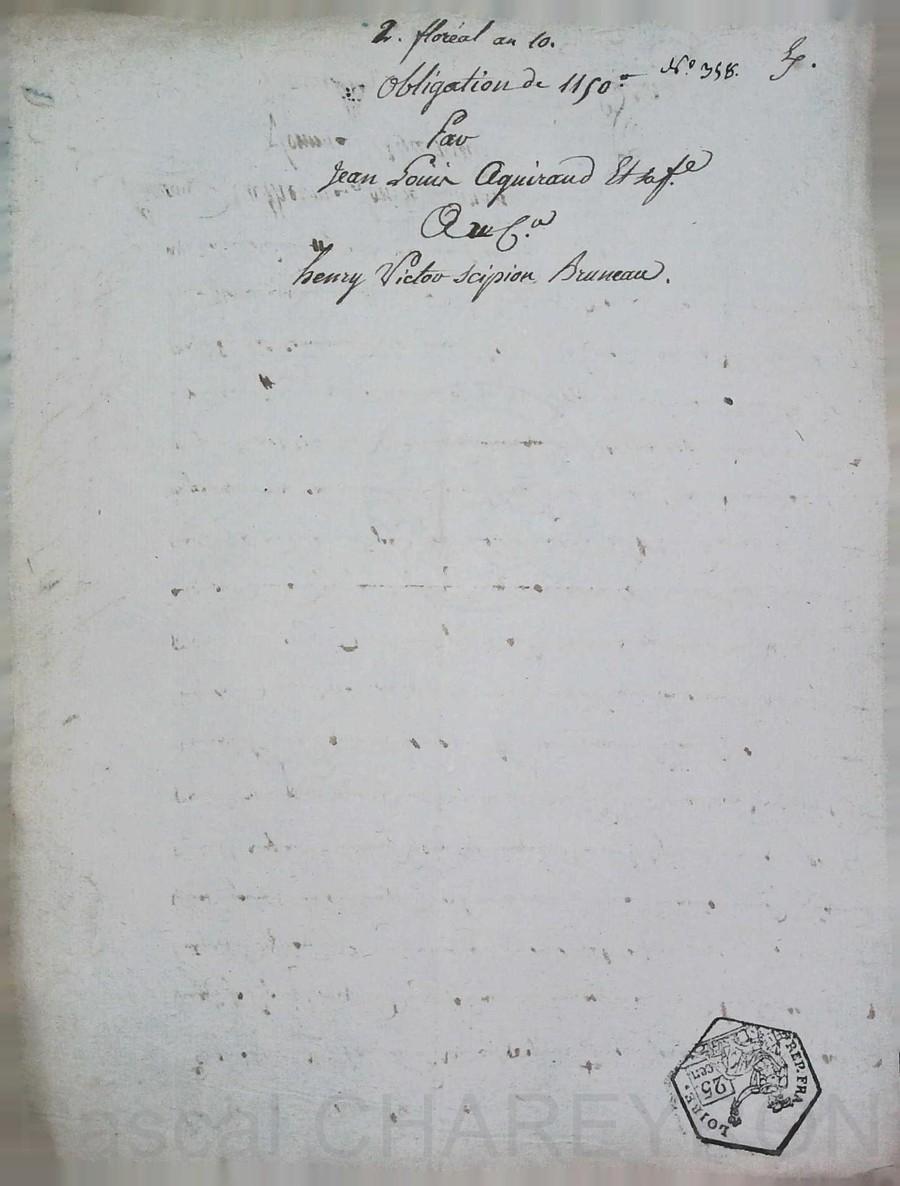 2. floréal an 10.
Obligation de 1150 ͫ N.º 358.
Par
Jean Louis Aguiraud Et sa f.e
Au C.en
henry Victor Scipion Bruneau.
REP. FRA
25
cen.
LOIRE